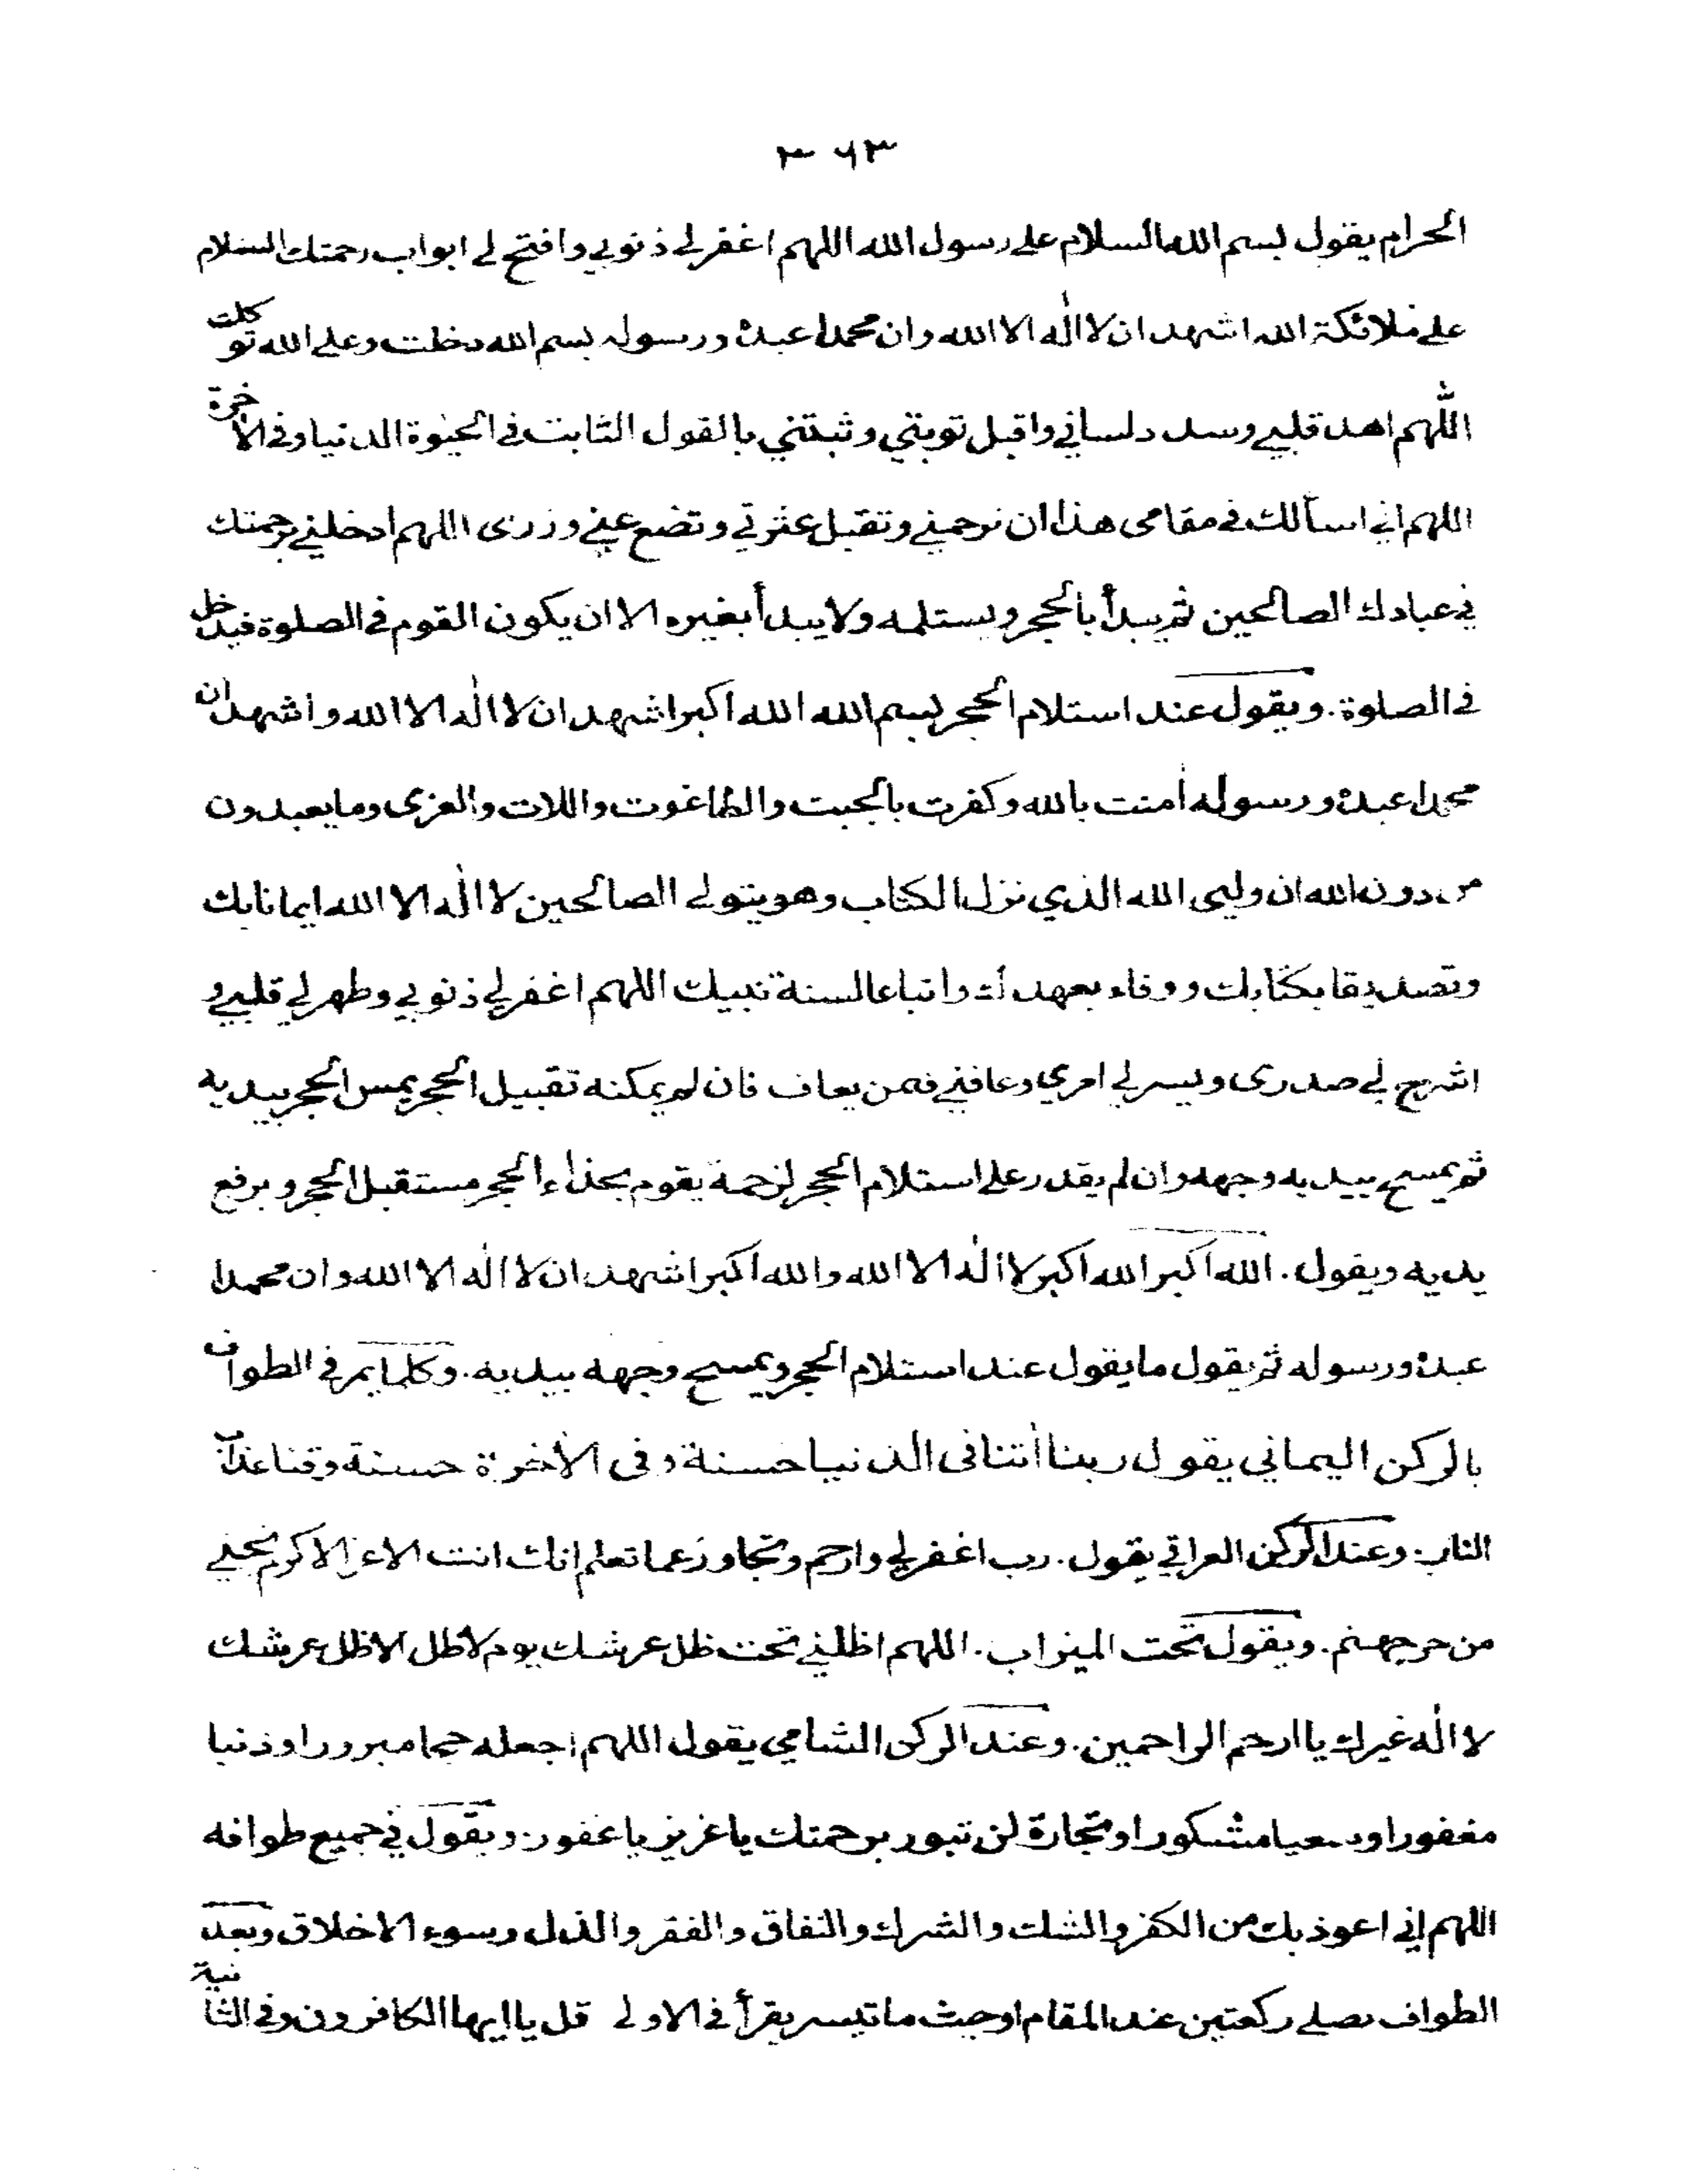 ٣٦٣
الحرام يقول بسم الله السلام على رسول الله اللهم اغفر لي ذنوبي وافتح لي ابواب رحمتك السلام
على ملائكة الله اشهد ان لا اله الا الله وان محمدا عبده ورسوله بسم الله دخلت وعلى الله توكلت
اللهم اهد قلبي وسدد لساني واقبل توبتي وثبتني بالقول الثابت في الحيوة الدنيا وفي الاخرة
اللهم اني اسألك في مقامي هذا ان ترحمني وتقبل عثرتي وتضع عني وزرى اللهم ادخلني برحمتك
في عبادك الصالحين ثم يبدأ بالحجر ويستلمه ولا يبدأ بغيره الا ان يكون القوم في الصلوة فيدخل
في الصلوة. ويقول عند استلام الحجر بسم الله الله اكبر اشهد ان لا اله الا الله واشهد ان
محمدا عبده ورسوله أمنت بالله وكفرت بالجبت والطاغوت واللات والعزى وما يعبدون
من دون الله ان وليى الله الذي نزل الكتاب وهو يتولى الصالحين لا اله الا الله ايمانا بك
وتصديقا بكتابك ووفاء بعهدك واتباعا لسنة نبيك اللهم اغفر لي ذنوبي وطهر لي قلبي و
اشرح لي صدرى ويسر لي امري وعافني فمن يعاف فان لم يمكنه تقبيل الحجر يمس الحجر بيديه
ثم يمسح بيديه وجهه وان لم يقدر على استلام الحجر لزحمة يقوم بحذاء الحجر مستقبل الحجر ويرفع
يديه ويقول. الله اكبر الله اكبر لا اله الا الله والله اكبر اشهد ان لا اله الا الله وان محمدا
عبده ورسوله ثم يقول ما يقول عند استلام الحجر ويمسح وجهه بيديه. وكلما يمر في الطواف
بالركن اليماني يقول ربنا أتنا فى الدنيا حسنة وفى الأخرة حسنة وقنا عذاب
النار. وعند الركن العراقي يقول. رب اغفر لي وارحم وتجاوز عما تعلم انك انت الاعز الاكرم نجني
من حر جهنم. ويقول تحت الميزاب. اللهم اظلني تحت ظل عرشك يوم لا ظل الا ظل عرشك
لا اله غيرك يا ارحم الراحمين. وعند الركن الشامي يقول اللهم اجعله حجا مبرورا وذنبا
مغفورا وسعيا مشكورا وتجارة لن تبور برحمتك يا عزيز يا غفور. ويقول في جميع طوافه
اللهم اني اعوذ بك من الكفر والشك والشرك والنفاق والفقر والذل وسوء الاخلاق وبعد
الطواف يصلي ركعتين عند المقام او حيث ما تيسر يقرأ في الاولى قل يا ايها الكافرون وفي الثانية